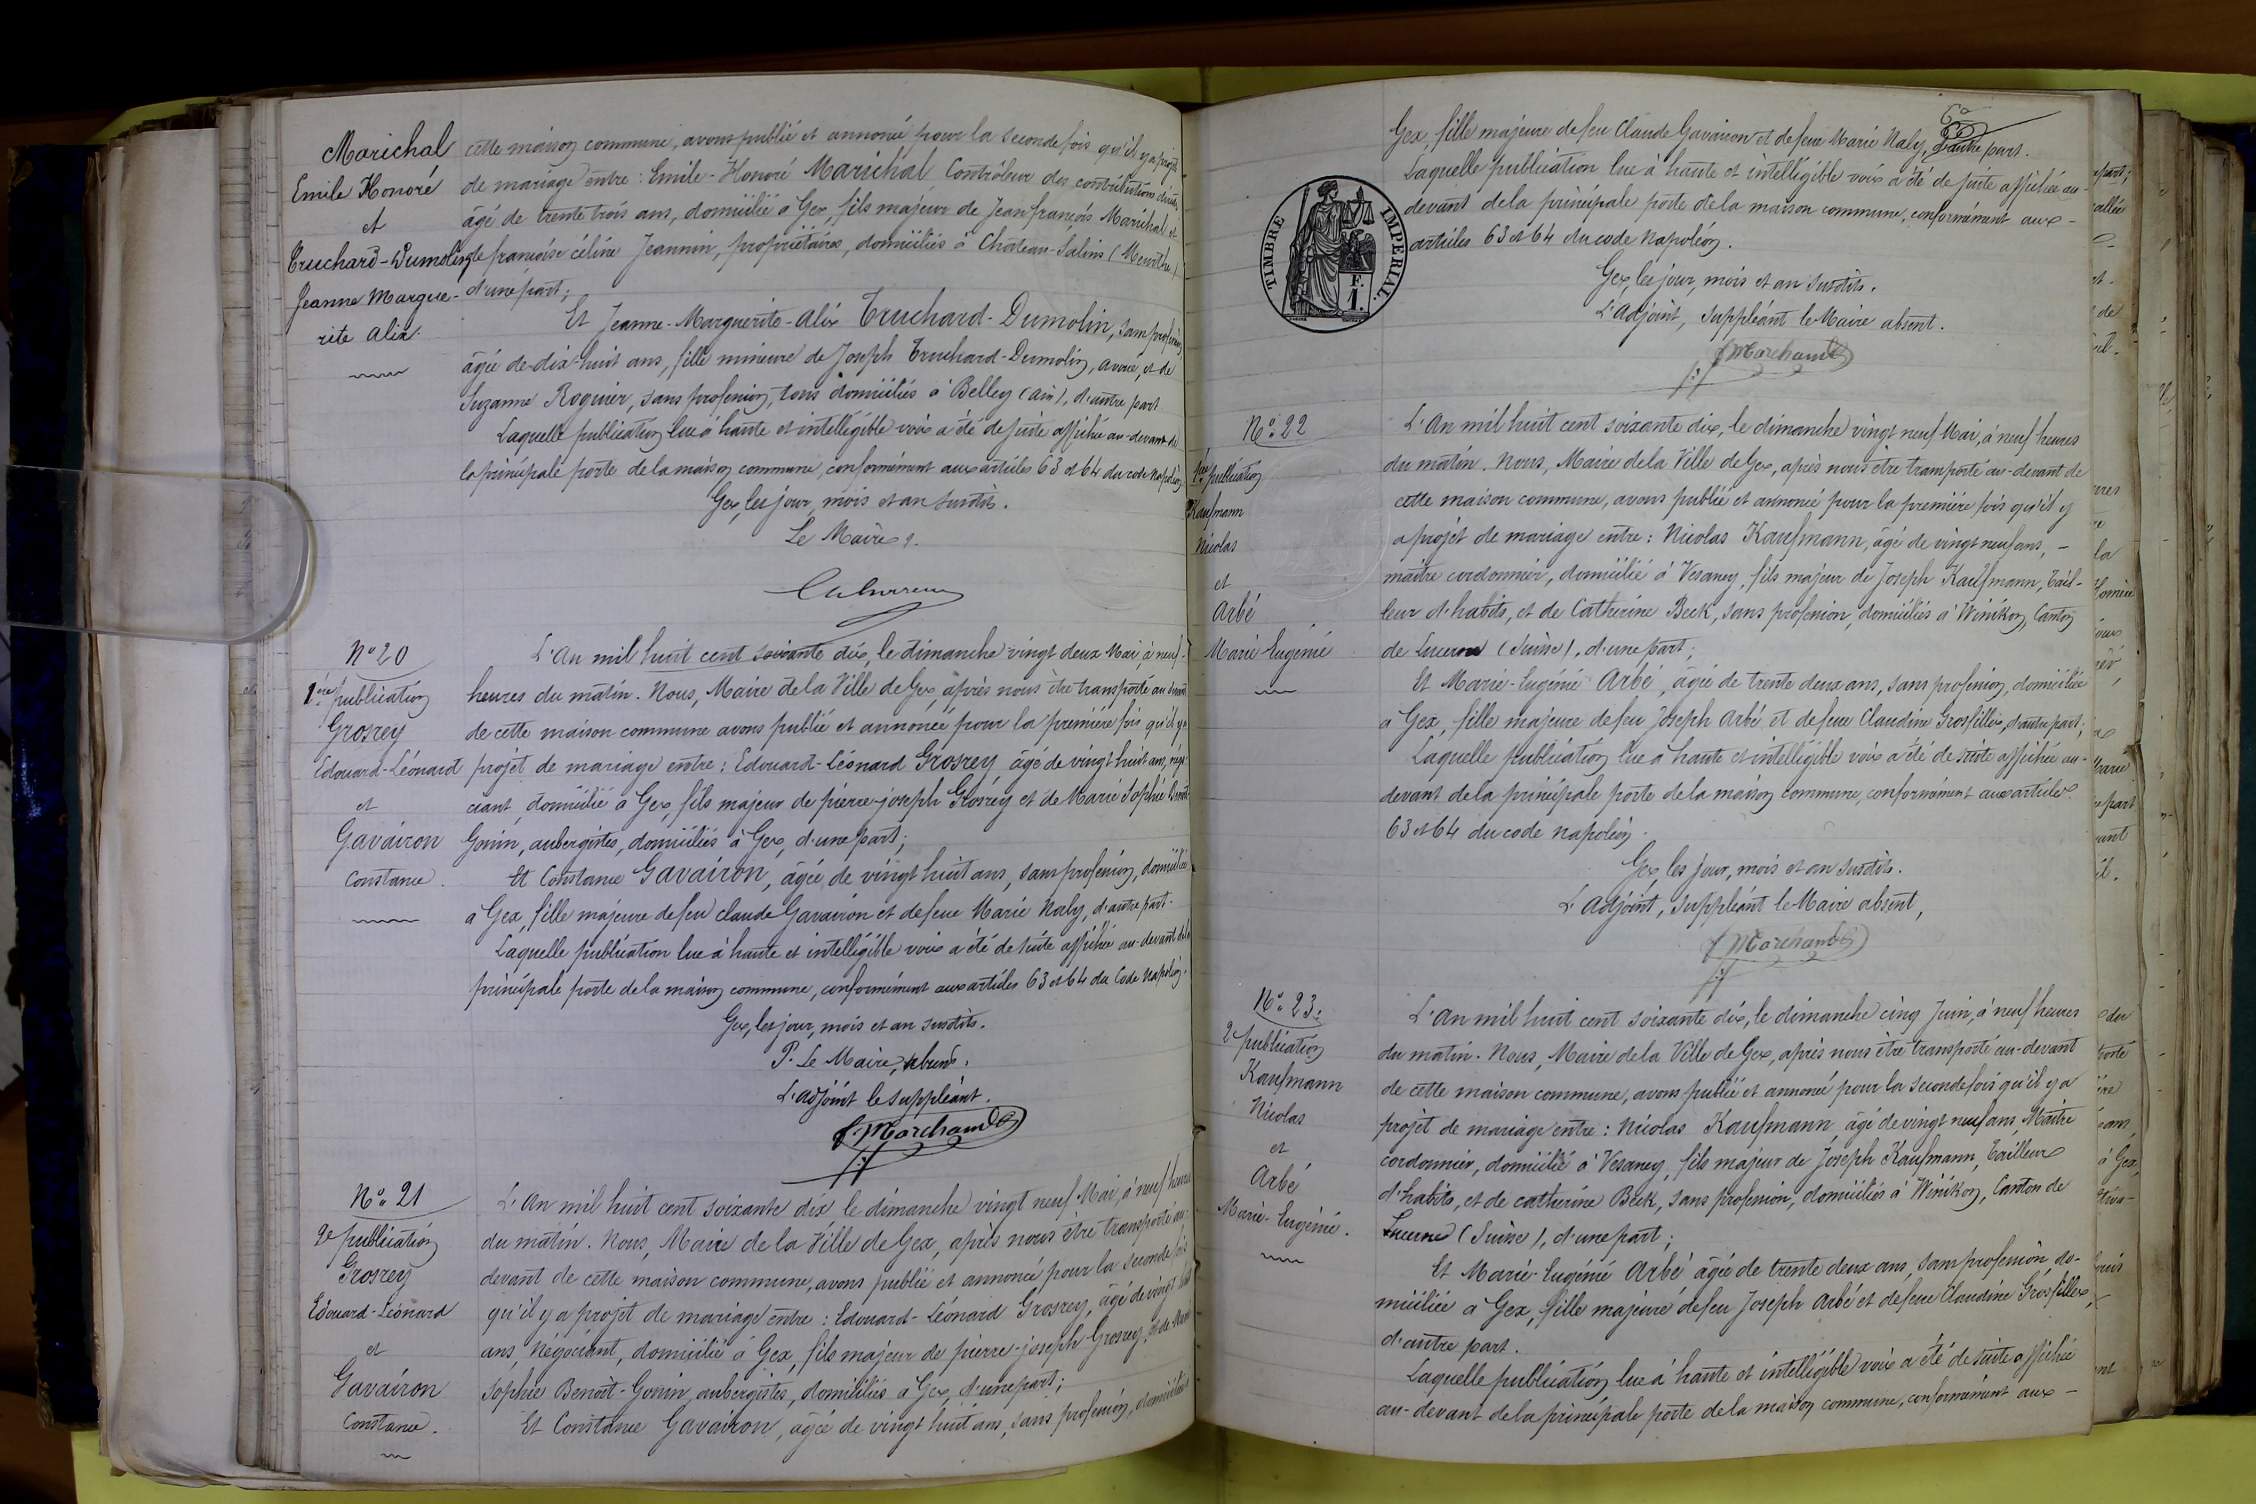 Marichal
Emile Honoré
et
Truchard-Dumolin
Jeanne Margue-
rite Alix.
cette maison commune, avons publié et annoncé pour la seconde fois qu'il y a projet
de mariage entre : Emile-Honoré Marichal Contrôleur des contributions
âgé de trente trois ans, domicilié à Gex, fils majeur de Jean françois Marichal et
de françoise céline Jeannin, propriétaires, domiciliés à Château-Salins (Meurthe)
d'une part ;
Et Jeanne-Marguerite-Alix Truchard-Dumolin, sans profession
âgée de dix-huit ans, fille mineure de Joseph Truchard-Dumolin, avoué, et de
Suzanne Roguier, sans profession, tous domiciliés à Belley (ain), d'autre part
Laquelle publication lue à haute et intelligible voix a été de suite affichée au-devant de
la principale porte de la maison commune, conformément aux articles 63 et 64 du code napoléon
Gex, les jour, mois et an susdits.
Le Maire
N° 20
1ère publication
Grosrey
Edouard-Léonard
et
Gavairon
Constance.
L'An mil huit cent soixante dix, le dimanche vingt deux Mai, à neuf
heures du matin. Nous, Maire de la Ville de Gex, après nous être transporté au devant
de cette maison commune avons publié et annoncé pour la première fois qu'il y a
projet de mariage entre : Edouard-Léonard Grosrey âgé de vingt huit ans, négo-
ciant, domicilié à Gex, fils majeur de pierre-joseph Grosrey et de Marie Sophie Benoît
Gonin, aubergistes, domiciliés à Gex, d'une part ;
Et Constance Gavairon, âgée de vingt huit ans, sans profession, domiciliée
à Gex, fille majeure de feu claude Gavairon et de feue Marie Naly, d'autre part.
Laquelle publication lue à haute et intelligible voix a été de suite affichée au-devant de la
principale porte de la maison commune, conformément aux articles 63 et 64 du Code Napoléon.
Gex, les jour, mois et an susdits.
P. Le Maire, absent,
L'adjoint le suppléant.
Marchand
N° 21
2e publication
Grosrey
Edouard-Léonard
et
Gavairon
Constance.
L'An mil huit cent soixante dix le dimanche vingt neuf Mai, à neuf heures
du matin. Nous, Maire de la Ville de Gex, après nous être transporté au-
devant de cette maison commune, avons publié et annoncé pour la seconde fois
qu'il y a projet de mariage entre : Edouard-Léonard Grosrey, âgé de vingt huit
ans, Négociant, domicilié à Gex, fils majeur de pierre-joseph Grosrey, et de Marie
Sophie Benoît-Gonin, aubergistes, domiciliés à Gex, d'une part ;
Et Constance Gavairon, âgée de vingt huit ans, sans profession, domiciliée
Gex, fille majeure de feu Claude Gavairon et de feue Marie Naly, d'autre part.
Laquelle publication lue à haute et intelligible voix a été de suite affichée au-
devant de la principale porte de la maison commune, conformément aux-
articles 63 et 64 du code Napoléon.
Gex, les jour, mois et an susdits.
L'Adjoint, suppléant le Maire absent.
Marchand
TIMBRE IMPERIAL.
F.
1.
N° 22
1ère publication
Kaufmann
Nicolas
et
Arbé
Marie Eugénie
L'An mil huit cent soixante dix, le dimanche vingt neuf Mai, à neuf heures
du matin. Nous, Maire de la Ville de Gex, après nous être transporté au-devant de
cette maison commune, avons publié et annoncé pour la première fois qu'il y
a projet de mariage entre : Nicolas Kaufmann, âgé de vingt neuf ans, -
maître cordonnier, domicilié à Vesancy, fils majeur de Joseph Kaufmann, Tail-
leur d'habits, et de Catherine Beck, sans profession, domiciliés à Winikon, Canton
de Lucerne (Suisse), d'une part ;
Et Marie-Eugénie Arbé, âgée de trente deux ans, sans profession, domiciliée
à Gex, fille majeure de feu Joseph Arbé et de feue Claudine Grosfillex, d'autre part ;
Laquelle publication lue à haute et intelligible voix a été de suite affichée au-
devant de la principale porte de la maison commune, conformément aux articles
63 et 64 du code napoléon.
Gex, les jour, mois et an susdits.
L'Adjoint, suppléant le Maire absent,
Marchand
N° 23.
2e publication
Kaufmann
Nicolas
et
Arbé
Marie-Eugénie.
L'An mil huit cent soixante dix, le dimanche cinq Juin, à neuf heures
du matin. Nous, Maire de la Ville de Gex, après nous être transporté au-devant
de cette maison commune, avons publié et annoncé pour la seconde fois qu'il y a
projet de mariage entre : Nicolas Kaufmann, âgé de vingt neuf ans, Maître
cordonnier, domicilié à Vesancy, fils majeur de Joseph Kaufmann, Tailleur
d'habits, et de catherine Beck, sans profession, domiciliés à Winikon, Canton de
Lucerne (Suisse), d'une part ;
Et Marie-Eugénie Arbé âgée de trente deux ans, sans profession, do-
miciliée à Gex, fille majeure de feu Joseph Arbé et de feue Claudine Grosfillex,
d'autre part.
Laquelle publication lue à haute et intelligible voix a été de suite affichée
au-devant de la principale porte de la maison commune, conformément aux-